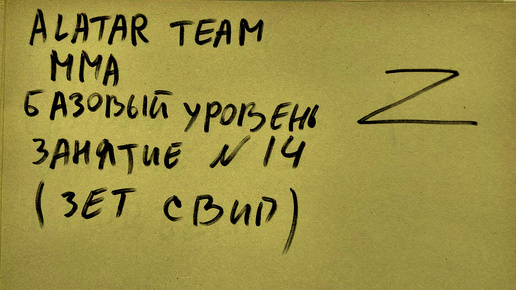 ALATAR TEAM
MMA
БАЗОВЫЙ УРОВЕНЬ
ЗАНЯТИЕ N 14
(ЗЕТ СВИП)
Z